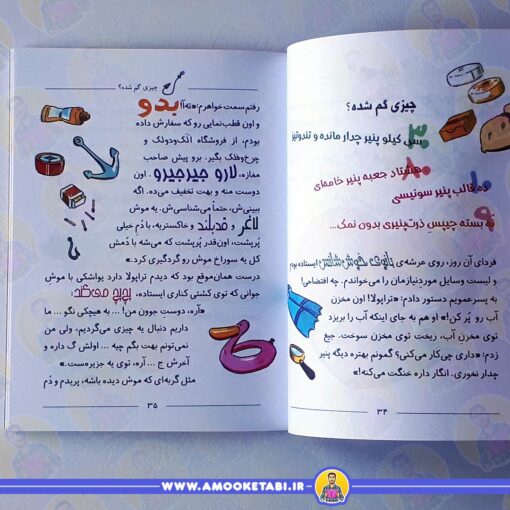 چیزی گم شده؟
سی کیلو پنیر چدار مانده و تندوتیز
هشتاد جعبه پنیر خامه‌ای
ده قالب پنیر سوئیسی
نه بسته چیپس ذرت‌پنیری بدون نمک...
فردای آن روز، روی عرشه‌ی بانوی خوش‌شانس ایستاده بودم
و لیست وسایل موردنیازمان را می‌خواندم. چه افتضاحی!
به پسرعمویم دستور دادم: «تراپولا! اون مخزن
آب رو پُر کن!» او هم به جای اینکه آب را بریزد
توی مخزن آب، ریخت توی مخزن سوخت. جیغ
زدم: «داری چی‌کار می‌کنی؟ گمونم بهتره دیگه پنیر
چدار نخوری. انگار داره خنگت می‌کنه!»
۳۴
چیزی گم شده؟
رفتم سمت خواهرم: «ته‌آ! بدو
و اون قطب‌نمایی رو که سفارش داده
بودم، از فروشگاه الک‌ودولک و
چرخ‌وفلک بگیر. برو پیش صاحب
مغازه، لارو جیرجیرو. اون
دوست منه و بهت تخفیف می‌ده. اگه
ببینی‌ش، حتماً می‌شناسی‌ش. یه موش
لاغر و قدبلند و خاکستریه، با دُم خیلی
پُرپشت، اون‌قدر پُرپشت که می‌شه با دُمش
کل یه سوراخ موش رو گردگیری کرد.»
درست همان‌موقع بود که دیدم تراپولا دارد یواشکی با موش
جوانی که توی کشتی کناری ایستاده، پچ‌پچ می‌کند:
«آره، دوستِ جوونِ من! ... به هیچکی نگو ... ما
داریم دنبال یه چیزی می‌گردیم، ولی من
نمی‌تونم بهت بگم چیه ... اولش گ داره و
آخرش ج ... آره، توی یه جزیره‌ست.»
مثل گربه‌ای که موش دیده باشه، پریدم و دُم
۳۵
WWW.AMOOKETABI.IR